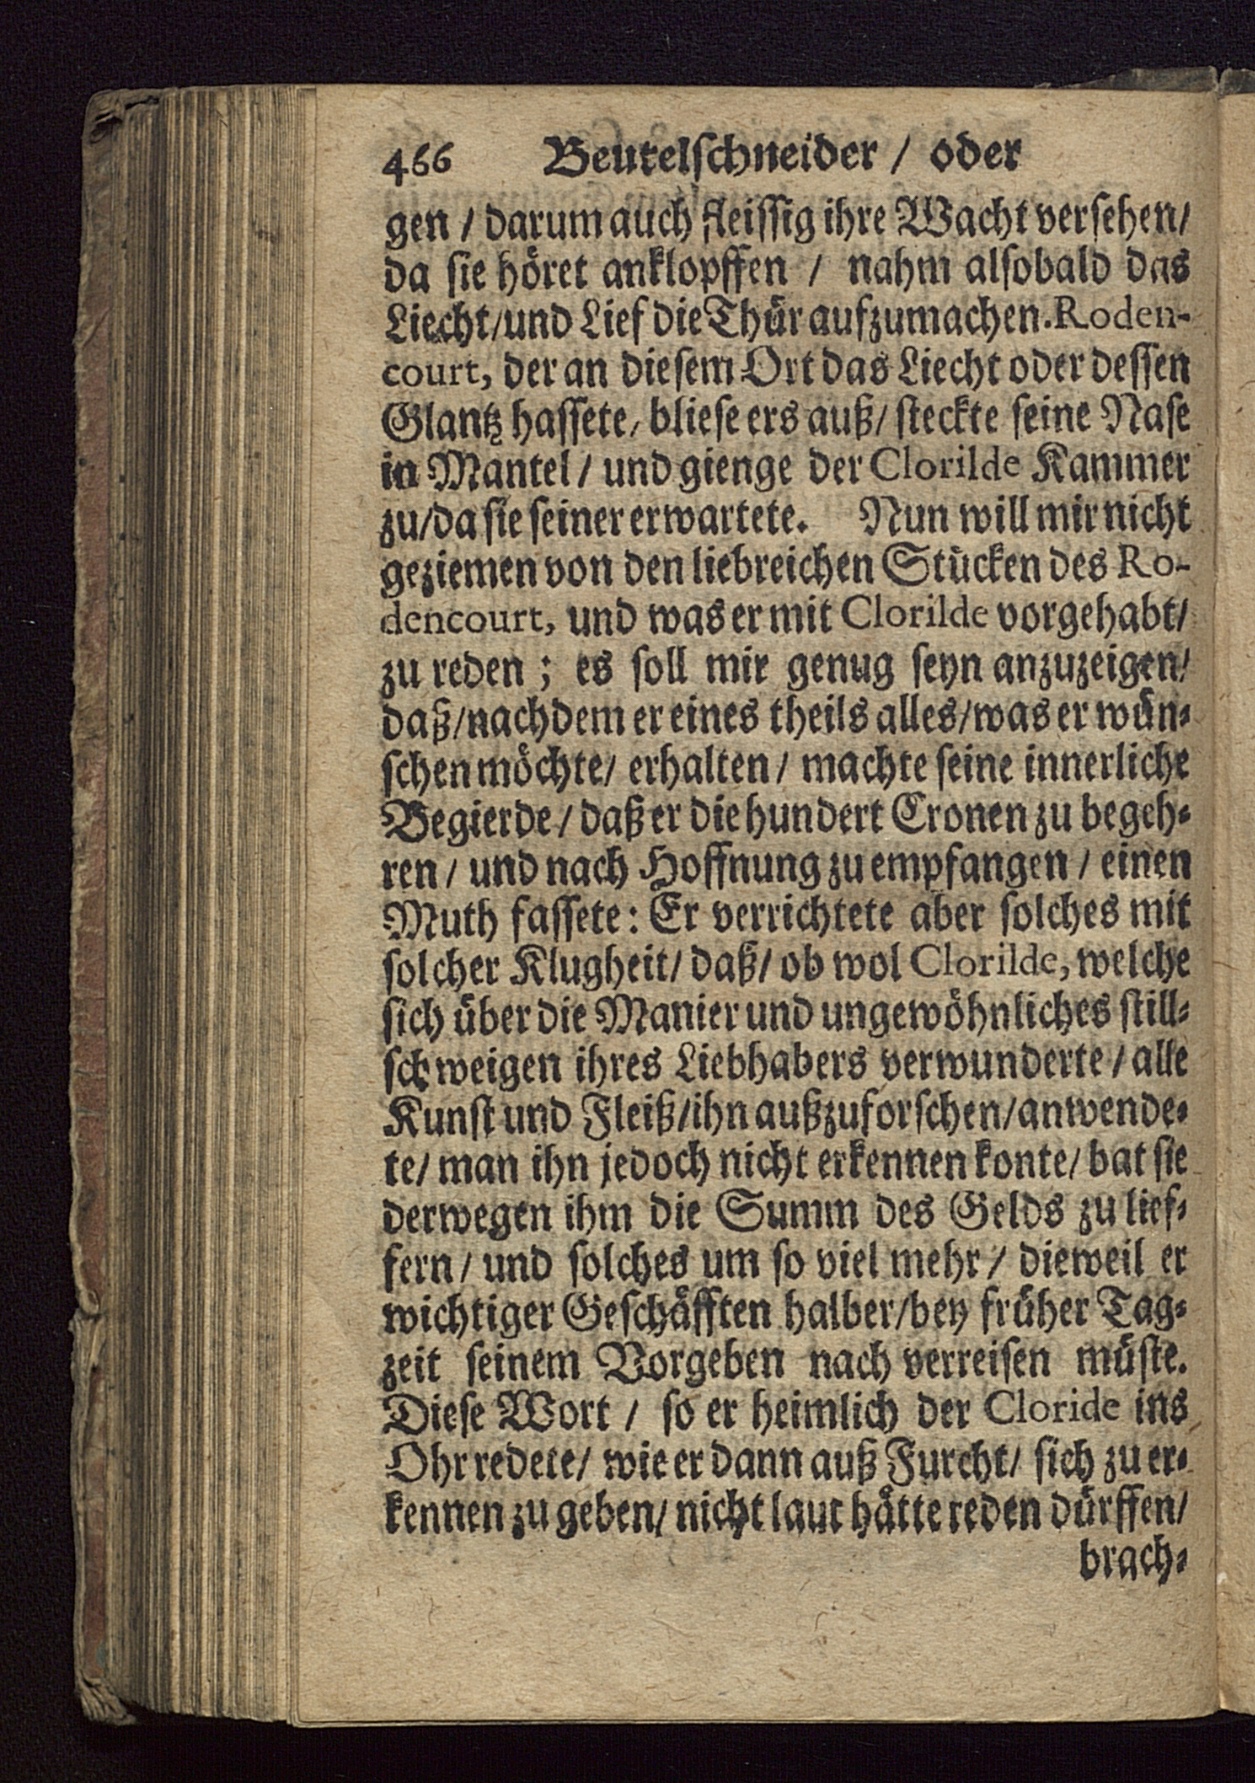 466 Beutelschneider / oder
gen / darum auch fleissig ihre Wacht versehen /
da sie höret anklopffen / nahm alsobald das
Liecht / und Lief die Thür aufzumachen. Roden-
court, der an diesem Ort das Liecht oder dessen
Glantz hassete, bliese ers auß / steckte seine Nase
in Mantel / und gienge der Clorilde Kammer
zu / da sie seiner erwartete. Nun will mir nicht
geziemen von den liebreichen Stücken des Ro-
dencourt, und was er mit Clorilde vorgehabt /
zu reden ; es soll mir genug seyn anzuzeigen /
daß / nachdem er eines theils alles / was er wün-
schen möchte / erhalten / machte seine innerliche
Begierde / daß er die hundert Cronen zu begeh-
ren / und nach Hoffnung zu empfangen / einen
Muth fassete : Er verrichtete aber solches mit
solcher Klugheit / daß / ob wol Clorilde, welche
sich über die Manier und ungewöhnliches still-
schweigen ihres Liebhabers verwunderte / alle
Kunst und Fleiß / ihn außzuforschen / anwende-
te / man ihn jedoch nicht erkennen konte / bat sie
derwegen ihm die Summ des Gelds zu lief-
fern / und solches um so viel mehr / dieweil er
wichtiger Geschäfften halber / bey früher Tag-
zeit seinem Vorgeben nach verreisen müste.
Diese Wort / so er heimlich der Cloride ins
Ohr redete / wie er dann auß Furcht / sich zu er-
kennen zu geben / nicht laut hätte reden dürffen /
brach-